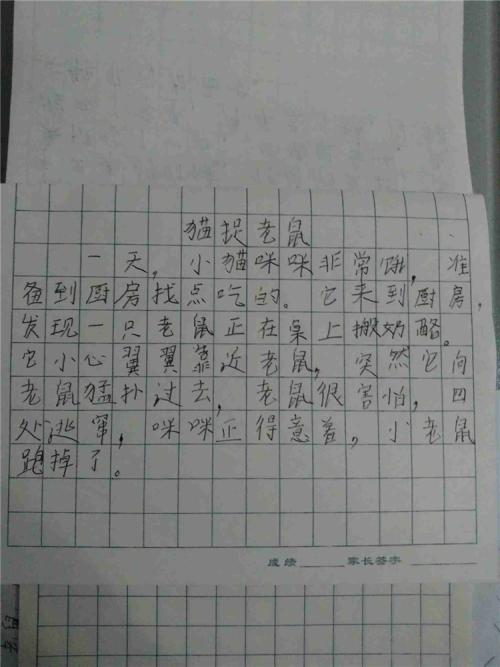 猫捉老鼠
一天，小猫咪咪非常饿，准
备到厨房找点吃的。它来到厨房，
发现一只老鼠正在桌上搬奶酪。
它小心翼翼靠近老鼠，突然它向
老鼠猛扑过去，老鼠很害怕，四
处逃窜，咪咪正得意着，小老鼠
跑掉了。
成绩 家长签字